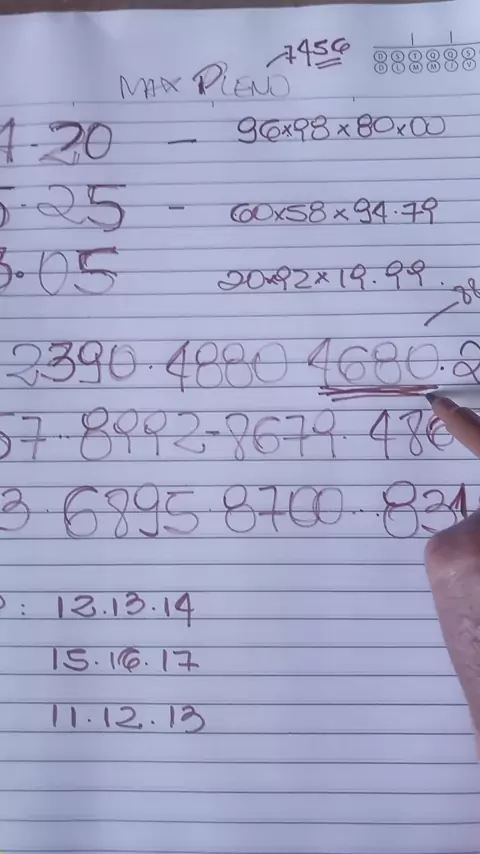 7456
MAX PLENO
20 - 96x98x80x00
25 - 60x58x94.79
05 20x92x19.99.
2390.4880 4680.2
57.8992-8679.486
3.6895.8700..831
: 12.13.14
15.16.17
11.12.13